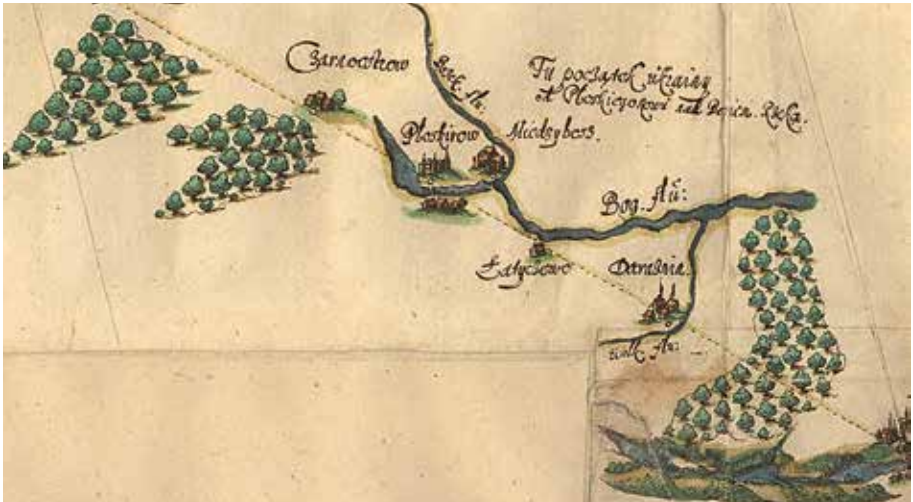 Czarnowstrow
Bozk. flu:
Tu początek ukrainy
od Ploskierowa nad Rzeka.
Ploskirow
Miedzyboss.
Bog. flu:
Latyczowo
Daraznia.
wolk. flu: